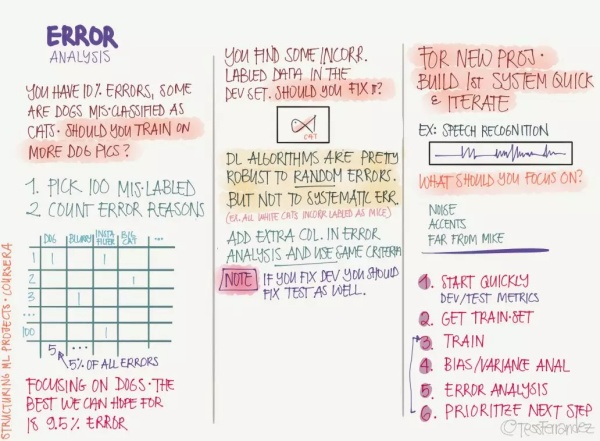 ERROR
ANALYSIS
YOU HAVE 10% ERRORS, SOME
ARE DOGS MIS-CLASSIFIED AS
CATS. SHOULD YOU TRAIN ON
MORE DOG PICS?
1. PICK 100 MIS-LABLED
2 COUNT ERROR REASONS
DOG BLURRY INSTA FILTER BIG CAT ...
1 1 1
2 1
3 1
...
100 1
5 ...
5% OF ALL ERRORS
FOCUSING ON DOGS. THE
BEST WE CAN HOPE FOR
IS 9.5% ERROR
STRUCTURING ML PROJECTS. COURSERA
YOU FIND SOME INCORR.
LABLED DATA IN THE
DEV SET. SHOULD YOU FIX IT?
CAT
DL ALGORITHMS ARE PRETTY
ROBUST TO RANDOM ERRORS.
BUT NOT TO SYSTEMATIC ERR.
(EX. ALL WHITE CATS INCORR LABLED AS MICE)
ADD EXTRA COL. IN ERROR
ANALYSIS AND USE SAME CRITERIA
NOTE IF YOU FIX DEV YOU SHOULD
FIX TEST AS WELL.
FOR NEW PROJ.
BUILD 1st SYSTEM QUICK
& ITERATE
EX: SPEECH RECOGNITION
WHAT SHOULD YOU FOCUS ON?
NOISE
ACCENTS
FAR FROM MIKE
1. START QUICKLY
DEV/TEST METRICS
2. GET TRAIN-SET
3. TRAIN
4. BIAS/VARIANCE ANAL
5. ERROR ANALYSIS
6. PRIORITIZE NEXT STEP
©TessFerrandez